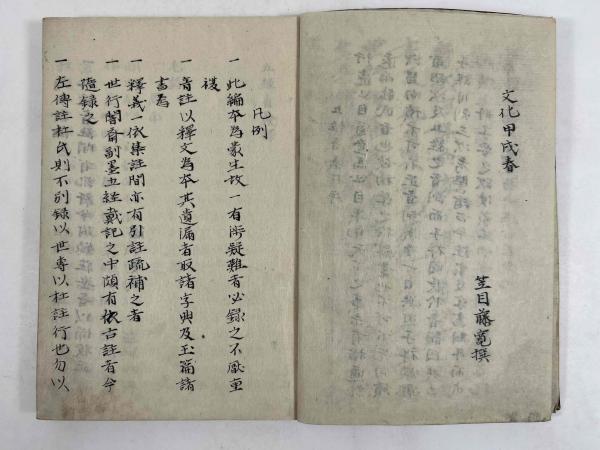 文化甲戌春
笠目藤寛撰
凡例
一 此編本為蒙生故一有所疑難者必録之不厭重
複
一 音註以釋文為本其遺漏者取諸字典及玉篇諸
書為
一 釋義一依集註間亦有引註疏補之者
一 世行闇斎副墨五経戴記之中頗有依古註者今
随録之
一 左傳註杜氏則不別録以世専以杜註行也勿以